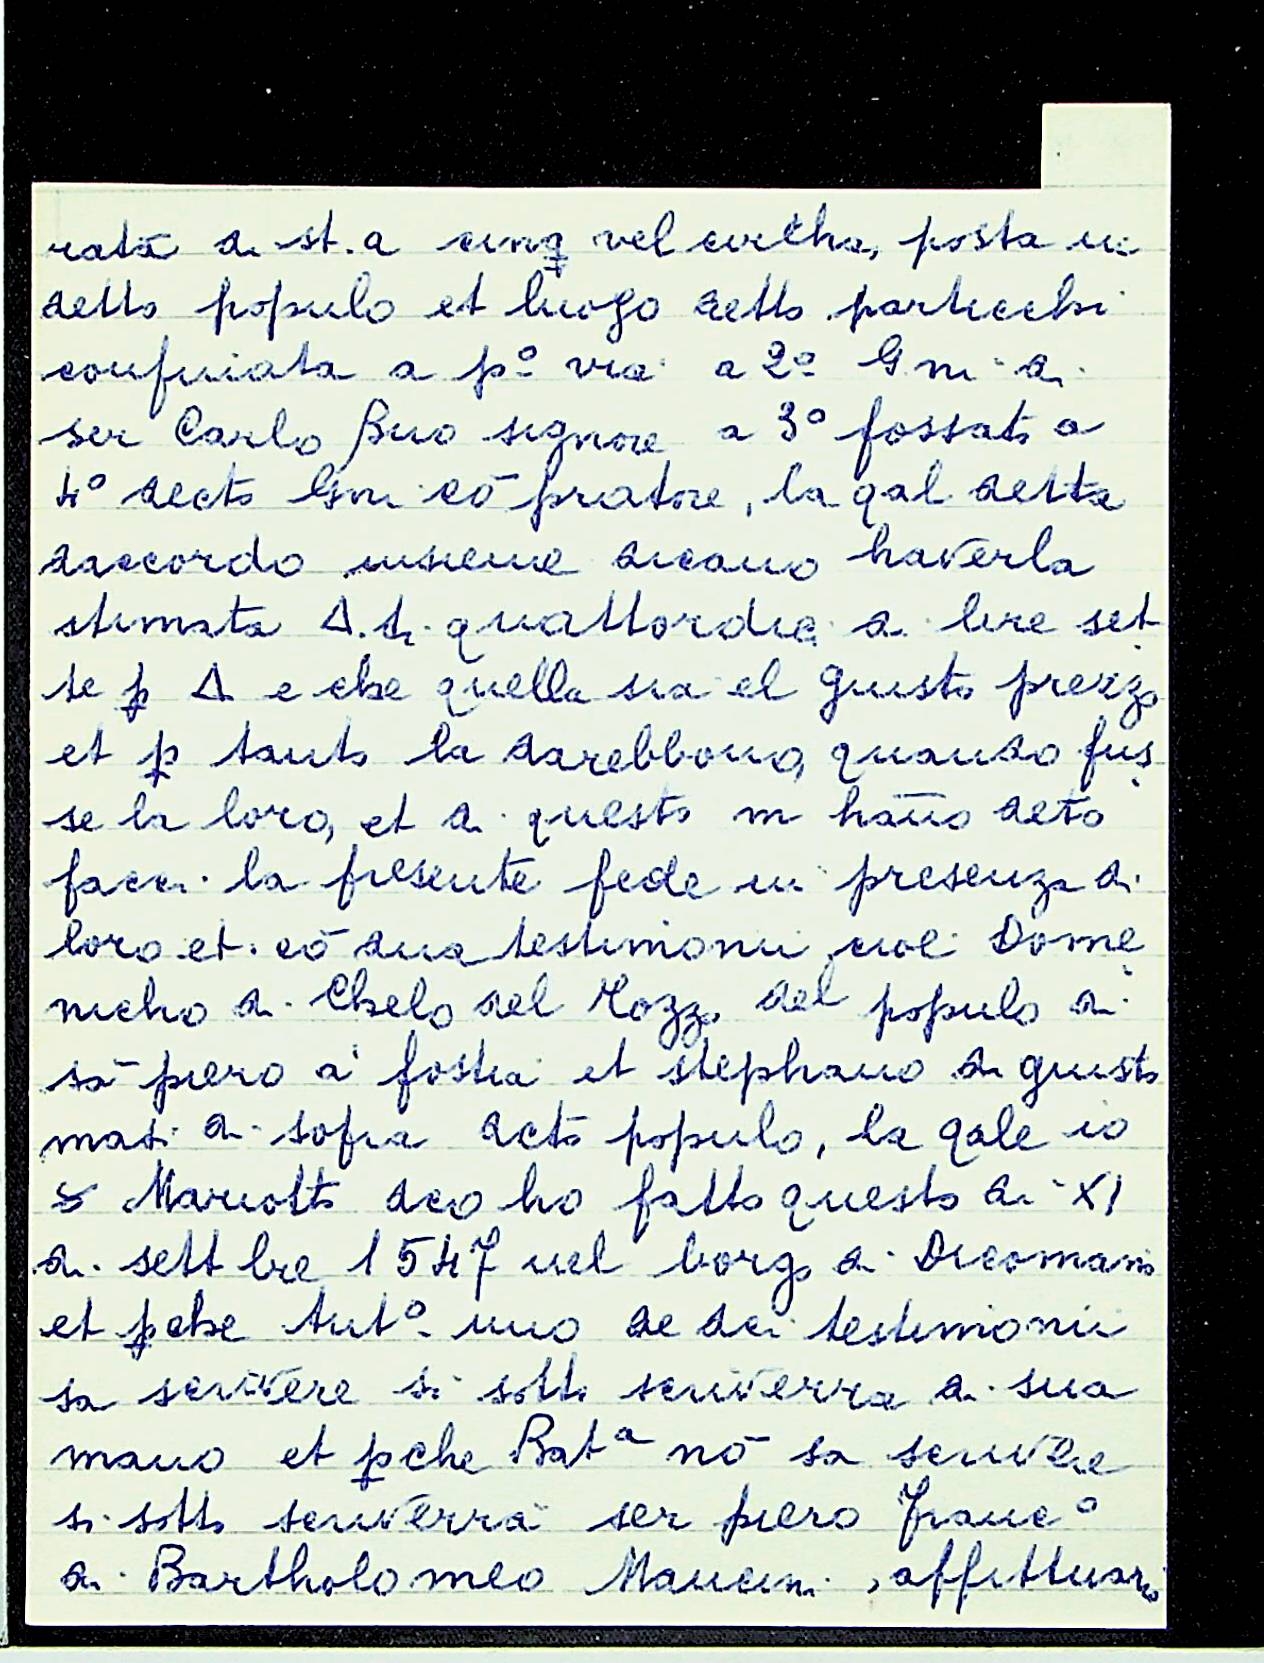 ratā di st.a cinq vel circha, posta in
detto populo et luogo detto particchi
confinata a pº via a 2º Gni di
ser Carlo Buo signore a 3º fossato a
4º decto Gni cō pratore, la qal detta
daccordo insieme dicano haverla
stimata Δ.ti quattordici di lire set
te p Δ e che quella sia el giusto prezzo
et p tanto la darebbono, quando fus
se la loro, et di questo m hāno deto
facci la presente fede in presenza di
loro et cō dua testimonii cioè Dome
nicho di Chelo del Rozzo del populo di
sā piero a fostia et stephano di giusto
masi di sofia dcto populo, la qale io
s Mariotto dco ho fatto questo di XI
di settbre 1547 nel borgo di Dicomano
et pche Antº uno de dci testimonii
sa scrivere si sotto scriverra di sua
mano et pche Batª nō sa scrivere
si sotto scriverrà ser piero Francº
di Bartholomeo Mancini, affittuario